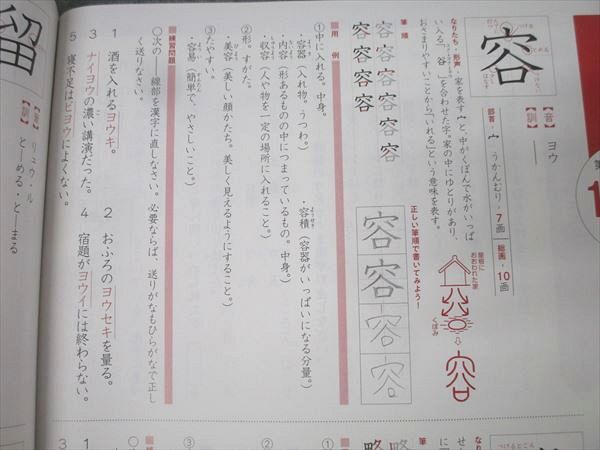 容
【音】ヨウ
【訓】
部首 宀 うかんむり・7画
総画・10画
なりたち・形声 家を表す宀と、中がくぼんで水がいっぱ
い入る「谷」を合わせた字。家の中にゆとりがあり、
おさまりやすいことから「いれる」という意味を表す。
屋根に
おおわれた家
くぼみ
筆順
容容容容容
容容容容容
正しい筆順で書いてみよう!
容容容容
用例
①中に入れる。中身。
・容器(入れ物。うつわ。)
・容積(容器がいっぱいになる分量。)
・内容(形あるものの中につまっているもの。中身。)
・収容(人や物を一定の場所に入れること。)
②形。すがた。
・美容(美しい顔かたち。美しく見えるようにすること。)
③たやすい。
・容易(簡単で、やさしいこと。)
練習問題
○次の――線部を漢字に直しなさい。必要ならば、送りがなもひらがなで正し
く送りなさい。
1 酒を入れるヨウキ。
2 おふろのヨウセキを量る。
3 ナイヨウの濃い講演だった。
4 宿題がヨウイには終わらない。
5 寝不足はビヨウによくない。
留
【音】リュウ・ル
【訓】と―める・と―まる